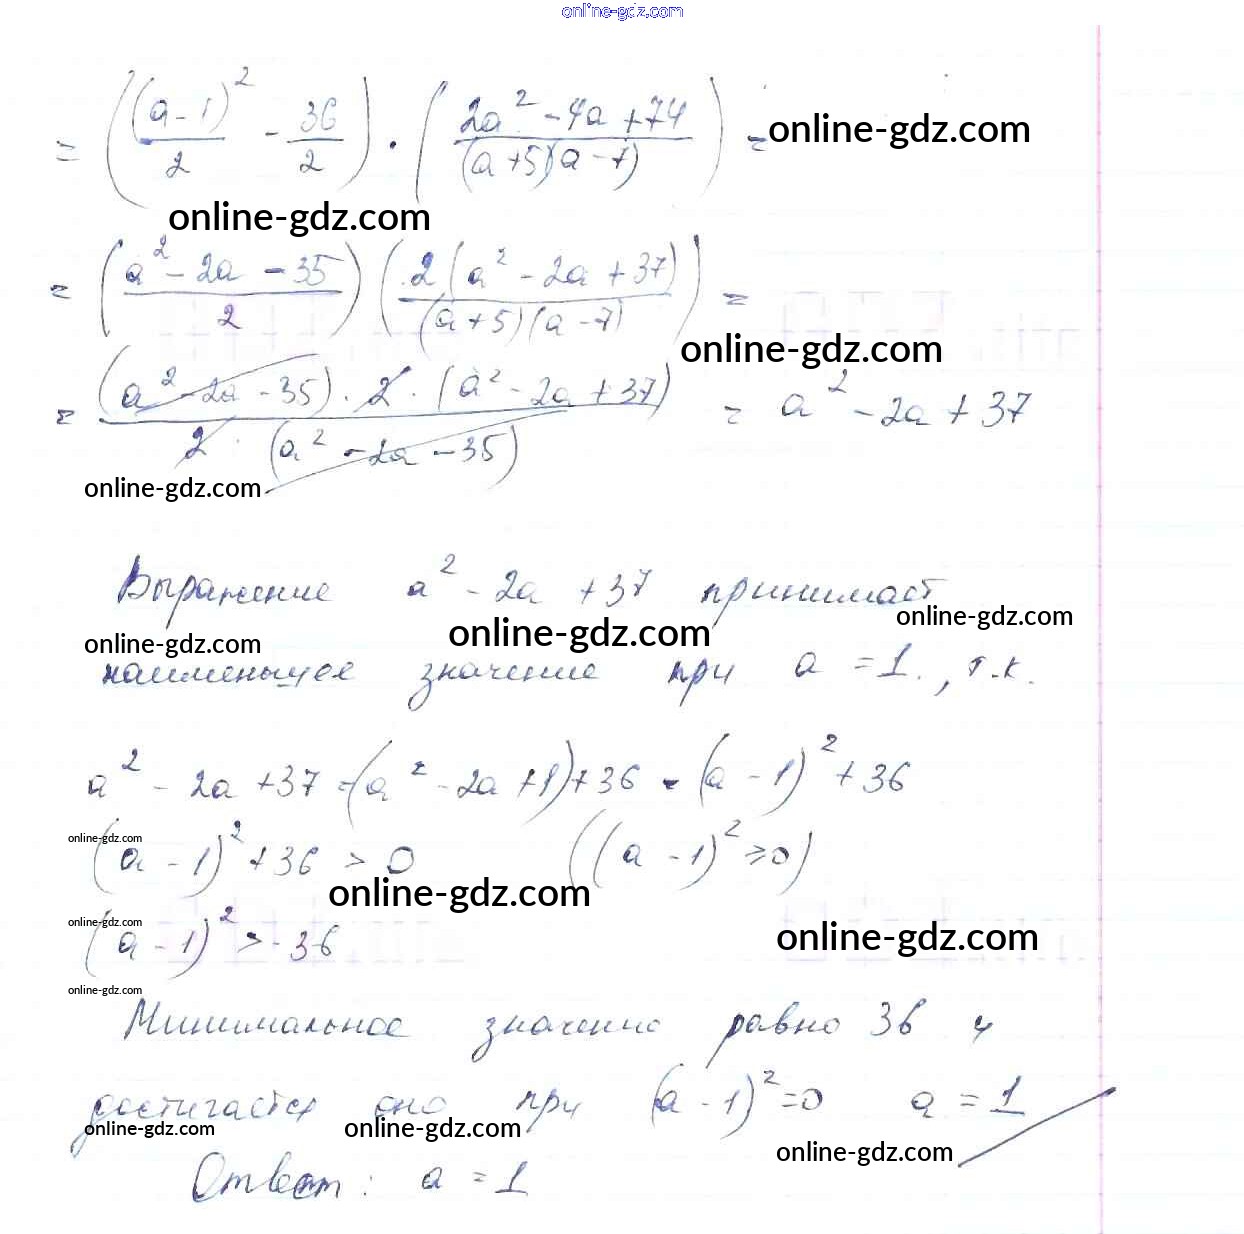 online-gdz.com
= ((a-1)²/2 - 36/2) · (2a² - 4a + 74/(a+5)(a-7)) = online-gdz.com
online-gdz.com
= (a² - 2a - 35/2) (2(a² - 2a + 37)/(a+5)(a-7)) =
online-gdz.com
= (a² - 2a - 35) · 2 · (a² - 2a + 37)/2 · (a² - 2a - 35) = a² - 2a + 37
online-gdz.com
Выражение a² - 2a + 37 принимает
online-gdz.com
online-gdz.com
online-gdz.com
наименьшее значение при a = 1., т.к.
a² - 2a + 37 = (a² - 2a + 1) + 36 = (a - 1)² + 36
online-gdz.com
(a - 1)² + 36 > 0 ((a - 1)² ≥ 0)
online-gdz.com
online-gdz.com
(a - 1)² > - 36
online-gdz.com
online-gdz.com
Минимальное значение равно 36 и
достигается оно при (a - 1)² = 0 a = 1
online-gdz.com
online-gdz.com
online-gdz.com
Ответ: a = 1